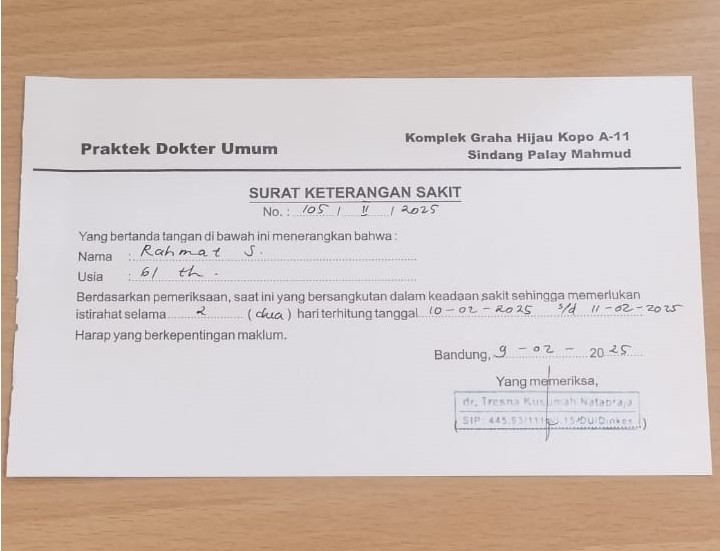 Praktek Dokter Umum
Komplek Graha Hijau Kopo A-11
Sindang Palay Mahmud
SURAT KETERANGAN SAKIT
No. : 105 / II / 2025
Yang bertanda tangan di bawah ini menerangkan bahwa :
Nama : Rahmat S.
Usia : 61 th.
Berdasarkan pemeriksaan, saat ini yang bersangkutan dalam keadaan sakit sehingga memerlukan
istirahat selama 2 ( dua ) hari terhitung tanggal 10-02-2025 s/d 11-02-2025
Harap yang berkepentingan maklum.
Bandung, 9-02-2025
Yang memeriksa,
dr. Tresna Kusumah Natapraja
SIP 445.93/111